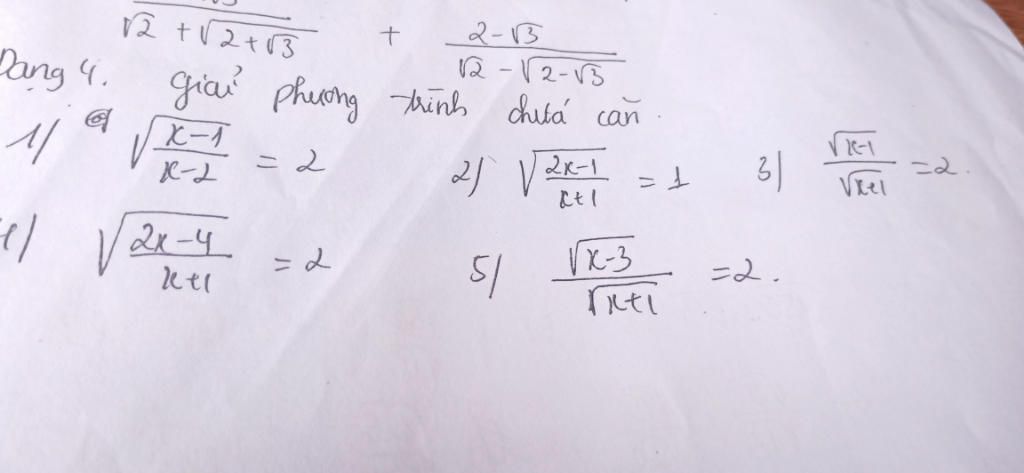 √2 + √(2 + √3) + (2 - √3)/(√2 - √(2 - √3))
Dạng 4. Giải phương trình chứa căn.
1/ √((x-1)/(x-2)) = 2 2/ √((2x-1)/(x+1)) = 1 3/ √(x-1)/√(x+1) = 2.
√((2x-4)/(x+1)) = 2 5/ √(x-3)/√(x+1) = 2.